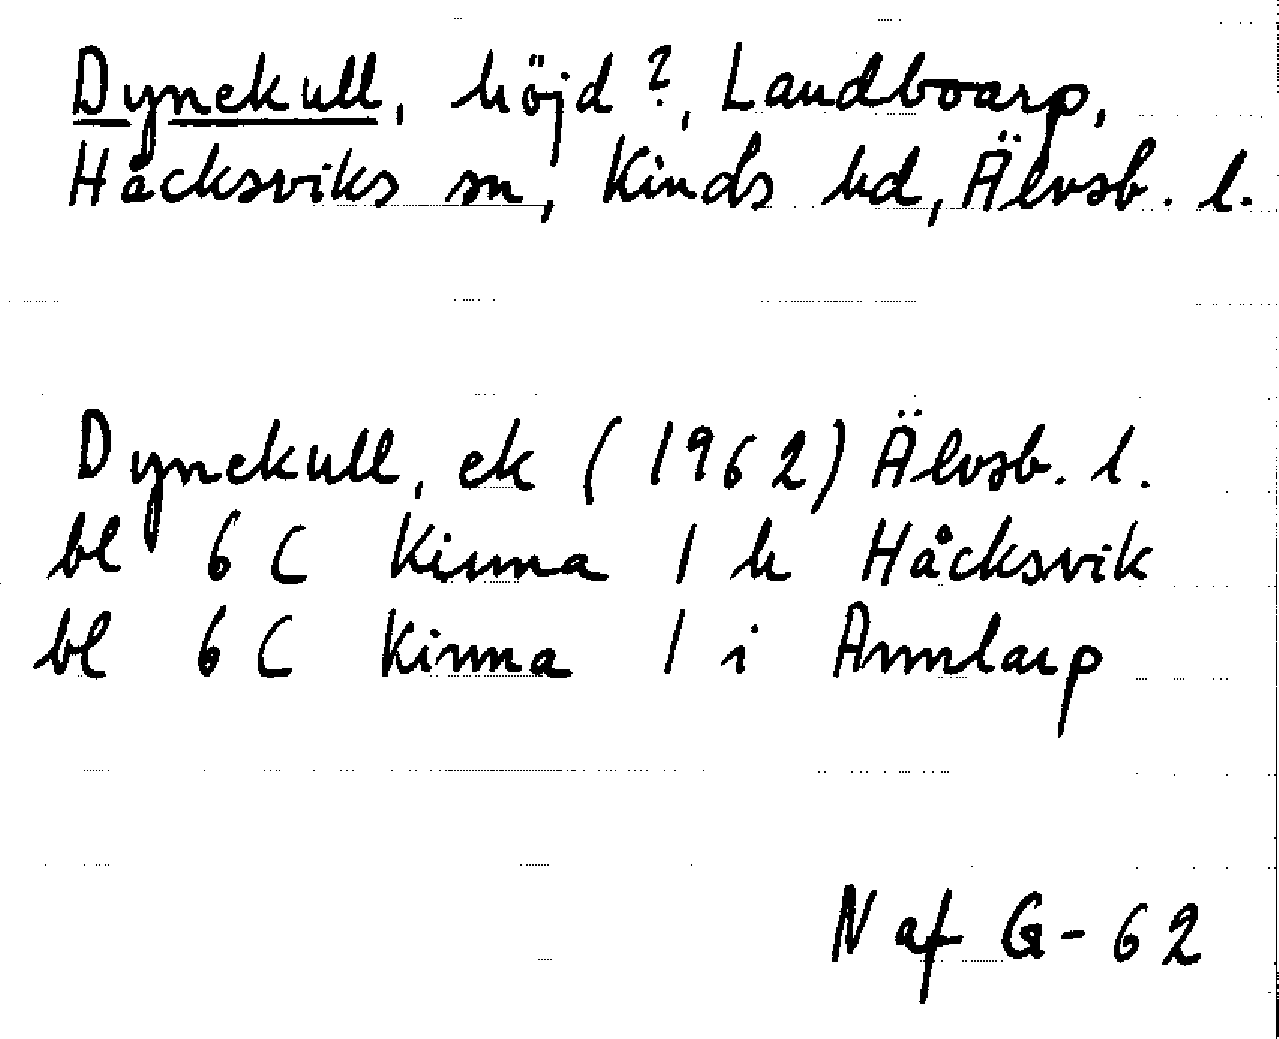 Dynekull, höjd?, Landboarp,
Håcksviks sn, Kinds hd, Älvsb. l.
Dynekull, ek (1962) Älvsb. l.
bl 6 C Kinna 1 h Håcksvik
bl 6 C Kinna 1 i Annlarp
N af G-62